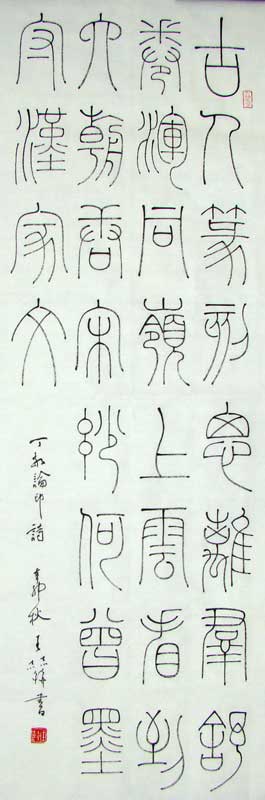 古人篆刻思離羣舒
卷渾同嶺上雲看到
六朝唐宋玅何曾墨
守漢家文
丁敬論印詩 辛卯秋 書